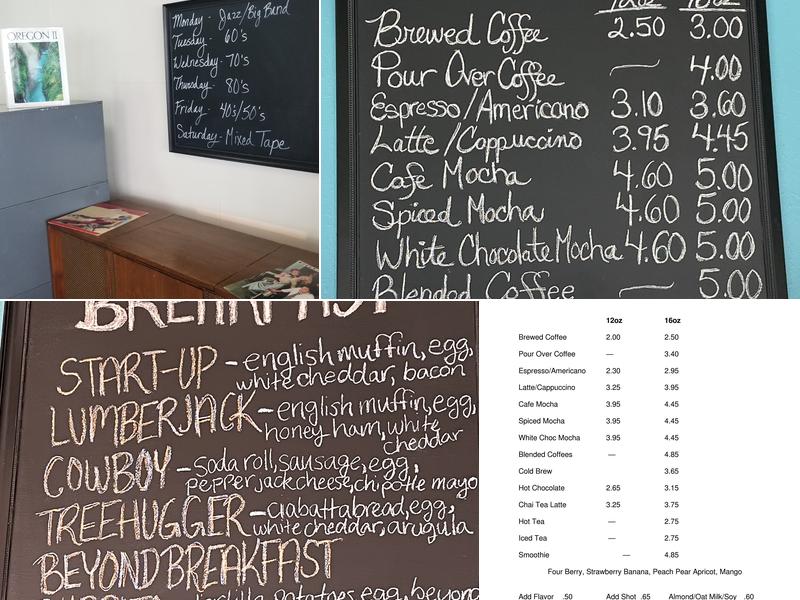 OREGON II
Monday - Jazz/Big Band
Tuesday - 60's
Wednesday - 70's
Thursday - 80's
Friday - 40's/50's
Saturday - Mixed Tape
12oz 16oz
Brewed Coffee 2.50 3.00
Pour Over Coffee — 4.00
Espresso/Americano 3.10 3.60
Latte/Cappuccino 3.95 4.45
Cafe Mocha 4.60 5.00
Spiced Mocha 4.60 5.00
White Chocolate Mocha 4.60 5.00
Blended Coffee — 5.00
BREAKFAST
START-UP - english muffin, egg,
white cheddar, bacon
LUMBERJACK - english muffin, egg,
honey ham, white
cheddar
COWBOY - soda roll, sausage, egg,
pepperjack cheese, chipotle mayo
TREEHUGGER - ciabatta bread, egg,
white cheddar, arugula
BEYOND BREAKFAST
potatoes, egg, beyond
12oz 16oz
Brewed Coffee 2.00 2.50
Pour Over Coffee — 3.40
Espresso/Americano 2.30 2.95
Latte/Cappuccino 3.25 3.95
Cafe Mocha 3.95 4.45
Spiced Mocha 3.95 4.45
White Choc Mocha 3.95 4.45
Blended Coffees — 4.85
Cold Brew 3.65
Hot Chocolate 2.65 3.15
Chai Tea Latte 3.25 3.75
Hot Tea — 2.75
Iced Tea — 2.75
Smoothie — 4.85
Four Berry, Strawberry Banana, Peach Pear Apricot, Mango
Add Flavor .50 Add Shot .65 Almond/Oat Milk/Soy .60